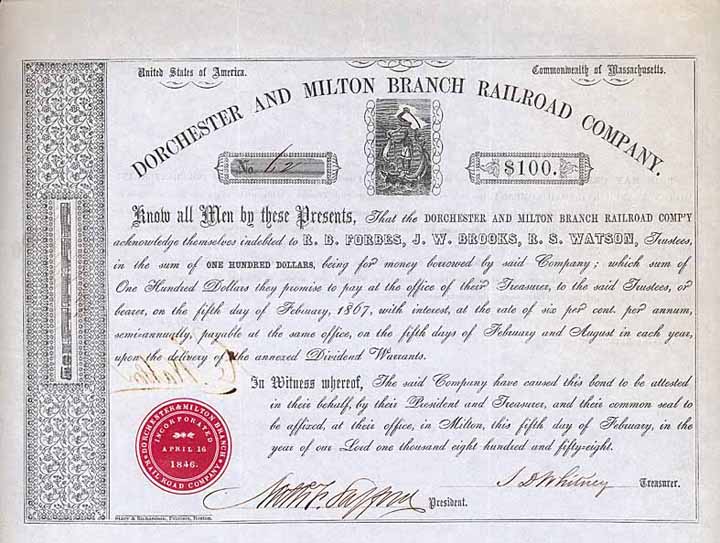 United States of America.
Commonwealth of Massachusetts.
DORCHESTER AND MILTON BRANCH RAILROAD COMPANY.
No. 62
$100.
Know all Men by these Presents, That the DORCHESTER AND MILTON BRANCH RAILROAD COMP'Y
acknowledge themselves indebted to R. B. FORBES, J. W. BROOKS, R. S. WATSON, Trustees,
in the sum of ONE HUNDRED DOLLARS, being for money borrowed by said Company; which sum of
One Hundred Dollars they promise to pay at the office of their Treasurer, to the said Trustees, or
bearer, on the fifth day of February, 1867, with interest, at the rate of six per cent. per annum,
semi-annually, payable at the same office, on the fifth days of February and August in each year,
upon the delivery of the annexed Dividend Warrants.
In Witness whereof, The said Company have caused this bond to be attested
in their behalf, by their President and Treasurer, and their common seal to
be affixed, at their office, in Milton, this fifth day of February, in the
year of our Lord one thousand eight hundred and fifty-eight.
DORCHESTER & MILTON BRANCH
RAIL ROAD COMPANY
INCORPORATED
APRIL 16
1846.
Safford
President.
J D Whitney
Treasurer.
Richardson, Printers, Boston.